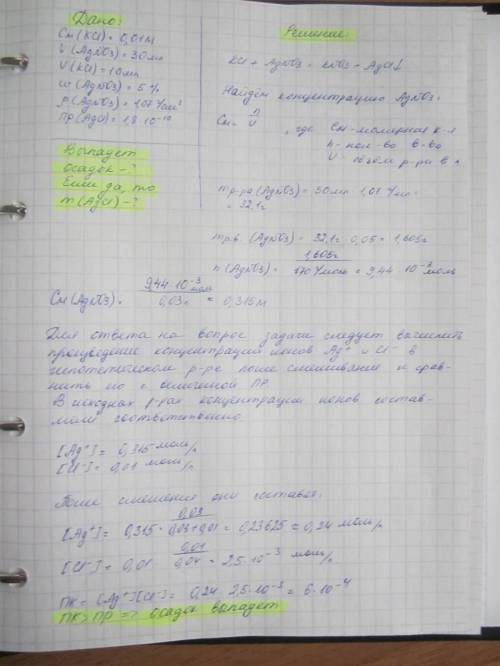 Дано:
См (KCl) = 0,01 М
V (AgNO3) = 30 мл
V (KCl) = 10 мл
ω (AgNO3) = 5 %
ρ (AgNO3) = 1,07 г/мл
ПР (AgCl) = 1,8 · 10⁻¹⁰
Выпадет
осадок - ?
Если да, то
m (AgCl) - ?
Решение:
KCl + AgNO3 = KNO3 + AgCl↓
Найдём концентрацию AgNO3:
См = n/V, где См - молярная к-я
n - кол-во в-ва
V - объем р-ра в л
m р-ра (AgNO3) = 30 мл · 1,07 г/мл
= 32,1 г
m р.в. (AgNO3) = 32,1 г · 0,05 = 1,605 г
n (AgNO3) = 1,605 г / 170 г/моль = 9,44 · 10⁻³ моль
См (AgNO3) = 9,44 · 10⁻³ моль / 0,03 л = 0,315 М
Для ответа на вопрос задачи следует вычислить
произведение концентраций ионов Ag⁺ и Cl⁻ в
гипотетическом р-ре после смешивания и срав-
нить его с величиной ПР.
В исходных р-рах концентрации ионов состав-
соответственно:
[Ag⁺] = 0,315 моль/л
[Cl⁻] = 0,01 моль/л
После смешения они составят:
[Ag⁺] = 0,315 · 0,03 / 0,03+0,01 = 0,23625 = 0,24 моль/л
[Cl⁻] = 0,01 · 0,01 / 0,04 = 2,5 · 10⁻³ моль/л
ПК = [Ag⁺][Cl⁻] = 0,24 · 2,5 · 10⁻³ = 6 · 10⁻⁴
ПК > ПР => осадок выпадет